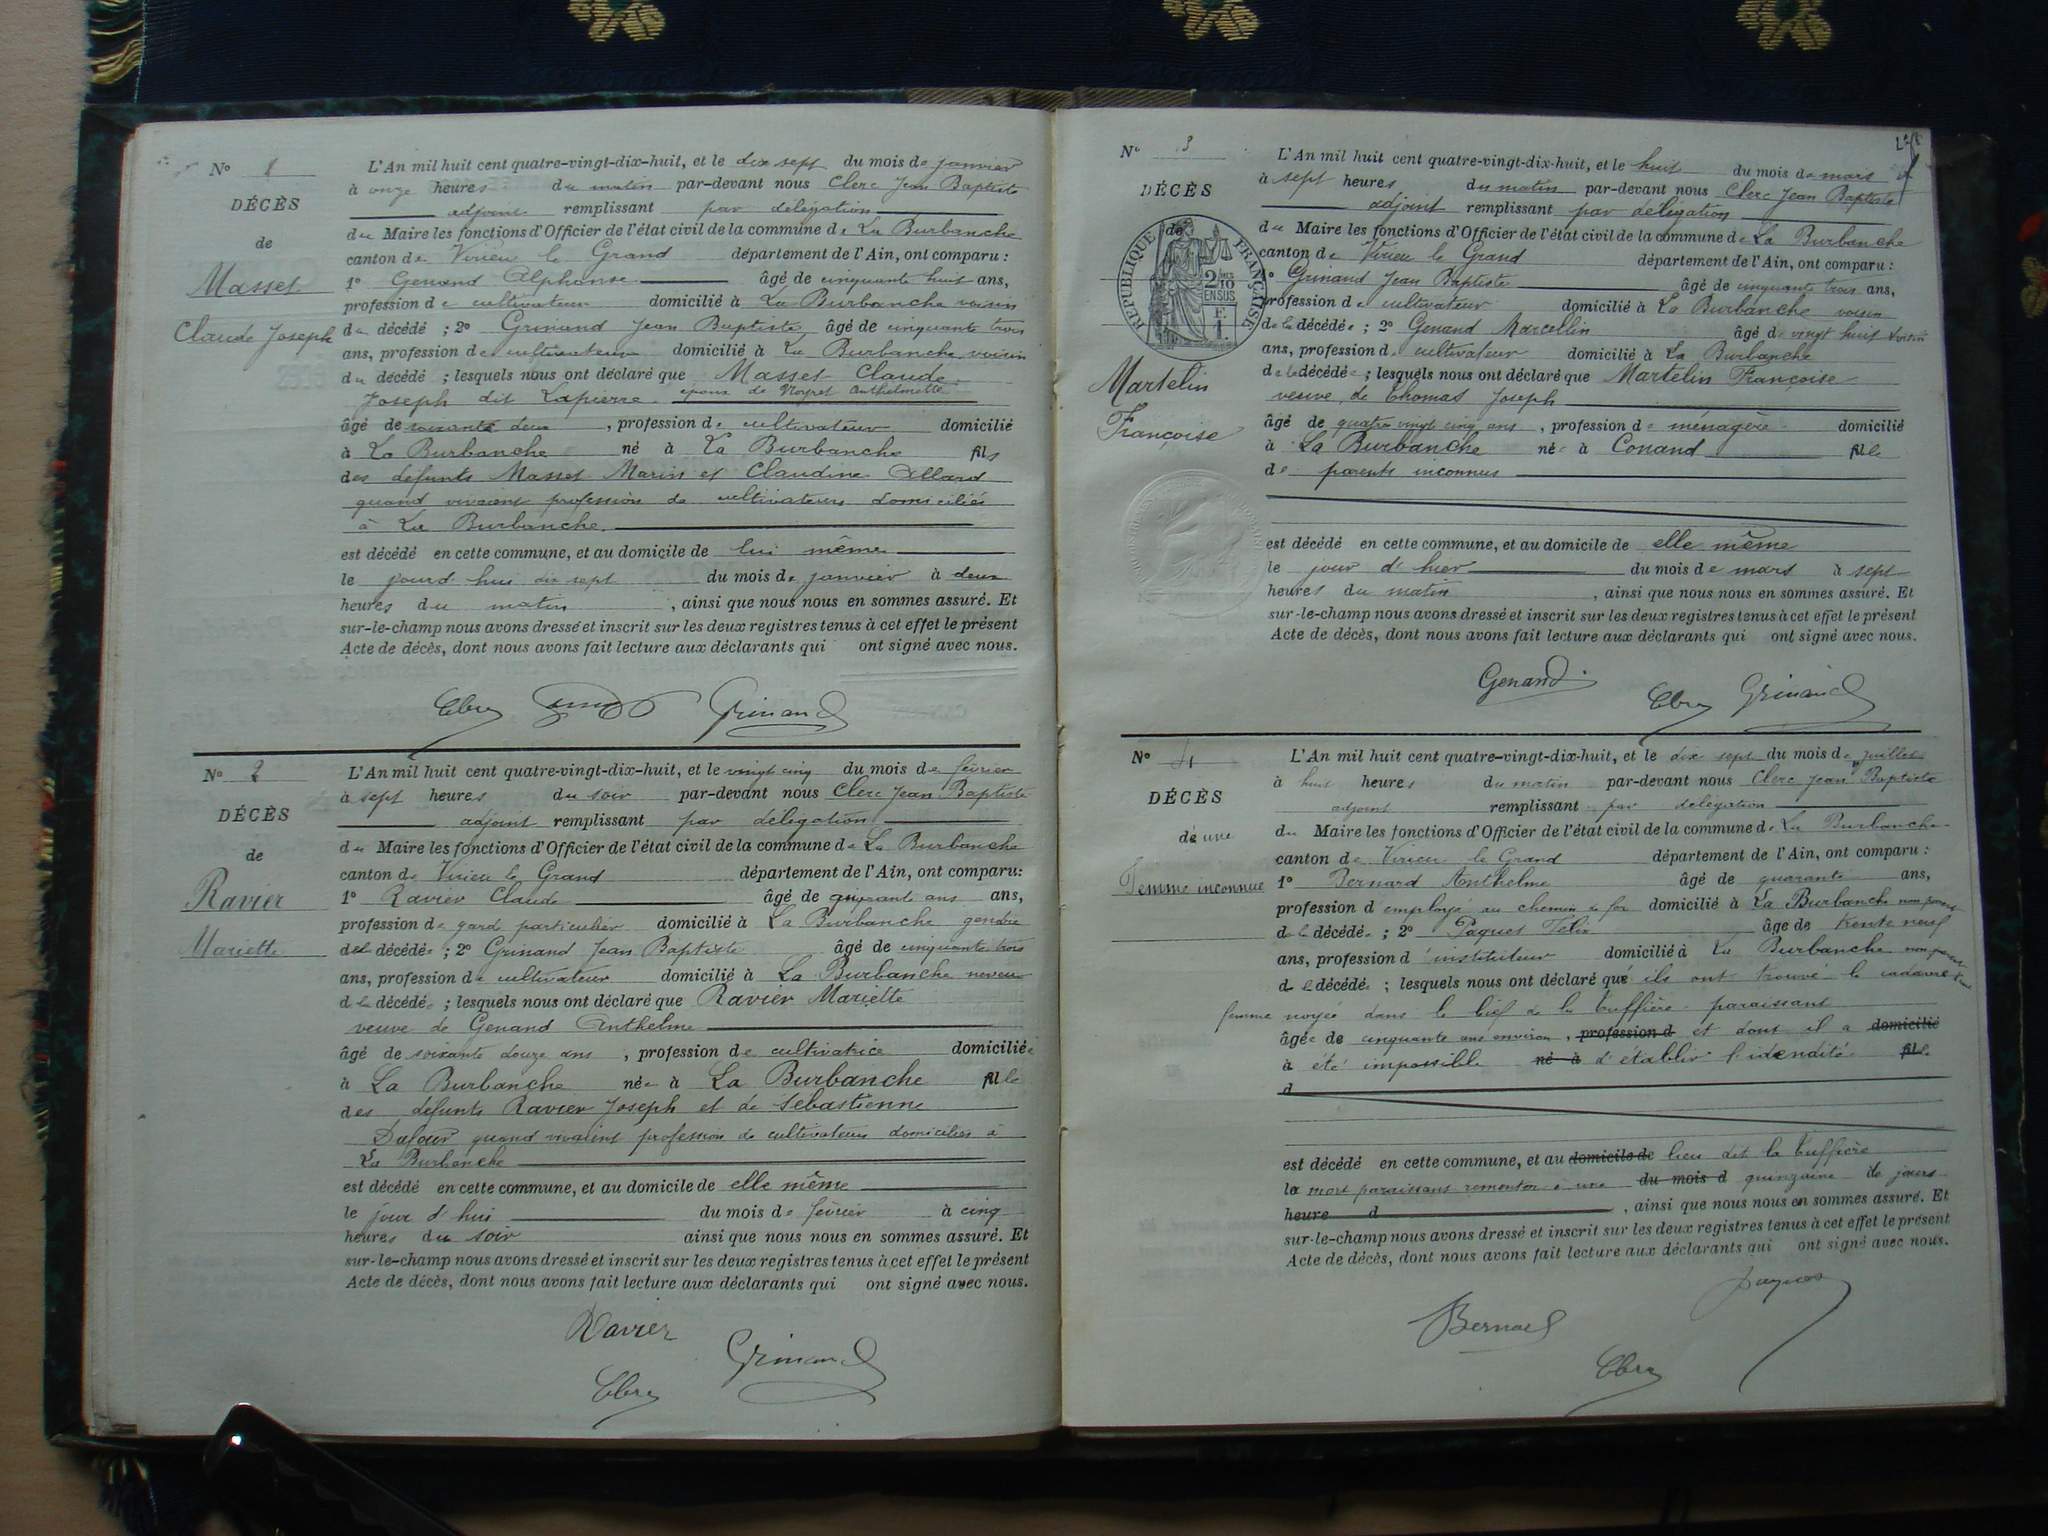 N° 1
DÉCÈS
de
Masset
Claude Joseph
L'An mil huit cent quatre-vingt-dix-huit, et le dix sept du mois de janvier
à onze heures du matin par-devant nous Clerc Jean Baptiste
adjoint remplissant par délégation
du Maire les fonctions d'Officier de l'état civil de la commune de La Burbanche
canton de Virieu le Grand département de l'Ain, ont comparu :
1° Genand Alphonse âgé de cinquante huit ans,
profession de cultivateur domicilié à La Burbanche voisin
du décédé ; 2° Grinand Jean Baptiste âgé de cinquante trois
ans, profession de cultivateur domicilié à La Burbanche voisin
du décédé ; lesquels nous ont déclaré que Masset Claude
Joseph dit Lapierre époux de Anthelmette
âgé de soixante deux , profession de cultivateur domicilié
à La Burbanche né à La Burbanche fils
des défunts Masset Marin et Claudine Allard
quand vivaient profession de cultivateurs domiciliés
à La Burbanche.
est décédé en cette commune, et au domicile de lui même
le jourd'hui dix sept du mois de janvier à deux
heures du matin , ainsi que nous nous en sommes assuré. Et
sur-le-champ nous avons dressé et inscrit sur les deux registres tenus à cet effet le présent
Acte de décès, dont nous avons fait lecture aux déclarants qui ont signé avec nous.
Grinand
N° 2
DÉCÈS
de
Ravier
Mariette
L'An mil huit cent quatre-vingt-dix-huit, et le vingt cinq du mois de février
à sept heures du soir par-devant nous Clerc Jean Baptiste
adjoint remplissant par délégation
du Maire les fonctions d'Officier de l'état civil de la commune de La Burbanche
canton de Virieu le Grand département de l'Ain, ont comparu:
1° Ravier Claude âgé de quarante ans ans,
profession de gard particulier domicilié à La Burbanche gendre
de la décédée ; 2° Grinand Jean Baptiste âgé de cinquante trois
ans, profession de cultivateur domicilié à La Burbanche neveu
de la décédée ; lesquels nous ont déclaré que Ravier Mariette
veuve de Genand Anthelme
âgé de soixante douze ans , profession de cultivatrice domiciliée
à La Burbanche née à La Burbanche fille
des défunts Ravier Joseph et de Sébastienne
Dufour quand vivaient profession de cultivateurs domiciliés à
La Burbanche
est décédé en cette commune, et au domicile de elle même
le jour d'hui du mois de février à cinq
heures du soir ainsi que nous nous en sommes assuré. Et
sur-le-champ nous avons dressé et inscrit sur les deux registres tenus à cet effet le présent
Acte de décès, dont nous avons fait lecture aux déclarants qui ont signé avec nous.
Ravier
Grinand
N° 3
DÉCÈS
de
RÉPUBLIQUE FRANÇAISE
2/10 EN SUS
F. 1.
Martelin
Françoise
L'An mil huit cent quatre-vingt-dix-huit, et le huit du mois de mars
à sept heures du matin par-devant nous Clerc Jean Baptiste
adjoint remplissant par délégation
du Maire les fonctions d'Officier de l'état civil de la commune de La Burbanche
canton de Virieu le Grand département de l'Ain, ont comparu :
1° Grinand Jean Baptiste âgé de cinquante trois ans,
profession de cultivateur domicilié à La Burbanche voisin
de la décédée ; 2° Genand Marcellin âgé de vingt huit voisin
ans, profession de cultivateur domicilié à La Burbanche
de la décédée ; lesquels nous ont déclaré que Martelin Françoise
veuve de Thomas Joseph
âgé de quatre vingt cinq ans , profession de ménagère domicilié
à La Burbanche née à Conand fille
de parents inconnus
est décédé en cette commune, et au domicile de elle même
le jour d'hier du mois de mars à sept
heures du matin , ainsi que nous nous en sommes assuré. Et
sur-le-champ nous avons dressé et inscrit sur les deux registres tenus à cet effet le présent
Acte de décès, dont nous avons fait lecture aux déclarants qui ont signé avec nous.
Genand
Grinand
N° 4
DÉCÈS
de une
Femme inconnue
L'An mil huit cent quatre-vingt-dix-huit, et le dix sept du mois de juillet
à huit heures du matin par-devant nous Clerc Jean Baptiste
adjoint remplissant par délégation
du Maire les fonctions d'Officier de l'état civil de la commune de La Burbanche
canton de Virieu le Grand département de l'Ain, ont comparu :
1° Bernard Anthelme âgé de quarante ans,
profession d employé au chemin de fer domicilié à La Burbanche non parent
de la décédée ; 2° Paques Félix âge de trente neuf
ans, profession d'instituteur domicilié à La Burbanche non parent
de la décédée ; lesquels nous ont déclaré que ils ont trouvé le cadavre d'une
femme noyée dans le bief de la tuffière paraissant
âgée de cinquante ans environ , profession d et dont il a domicilié
à été impossible né à d'établir l'idendité fille
d
est décédé en cette commune, et au domicile de lieu dit la tuffière
la mort paraissant remonter à une du mois d quinzaine de jours
heure d , ainsi que nous nous en sommes assuré. Et
sur-le-champ nous avons dressé et inscrit sur les deux registres tenus à cet effet le présent
Acte de décès, dont nous avons fait lecture aux déclarants qui ont signé avec nous.
Paques
Bernard